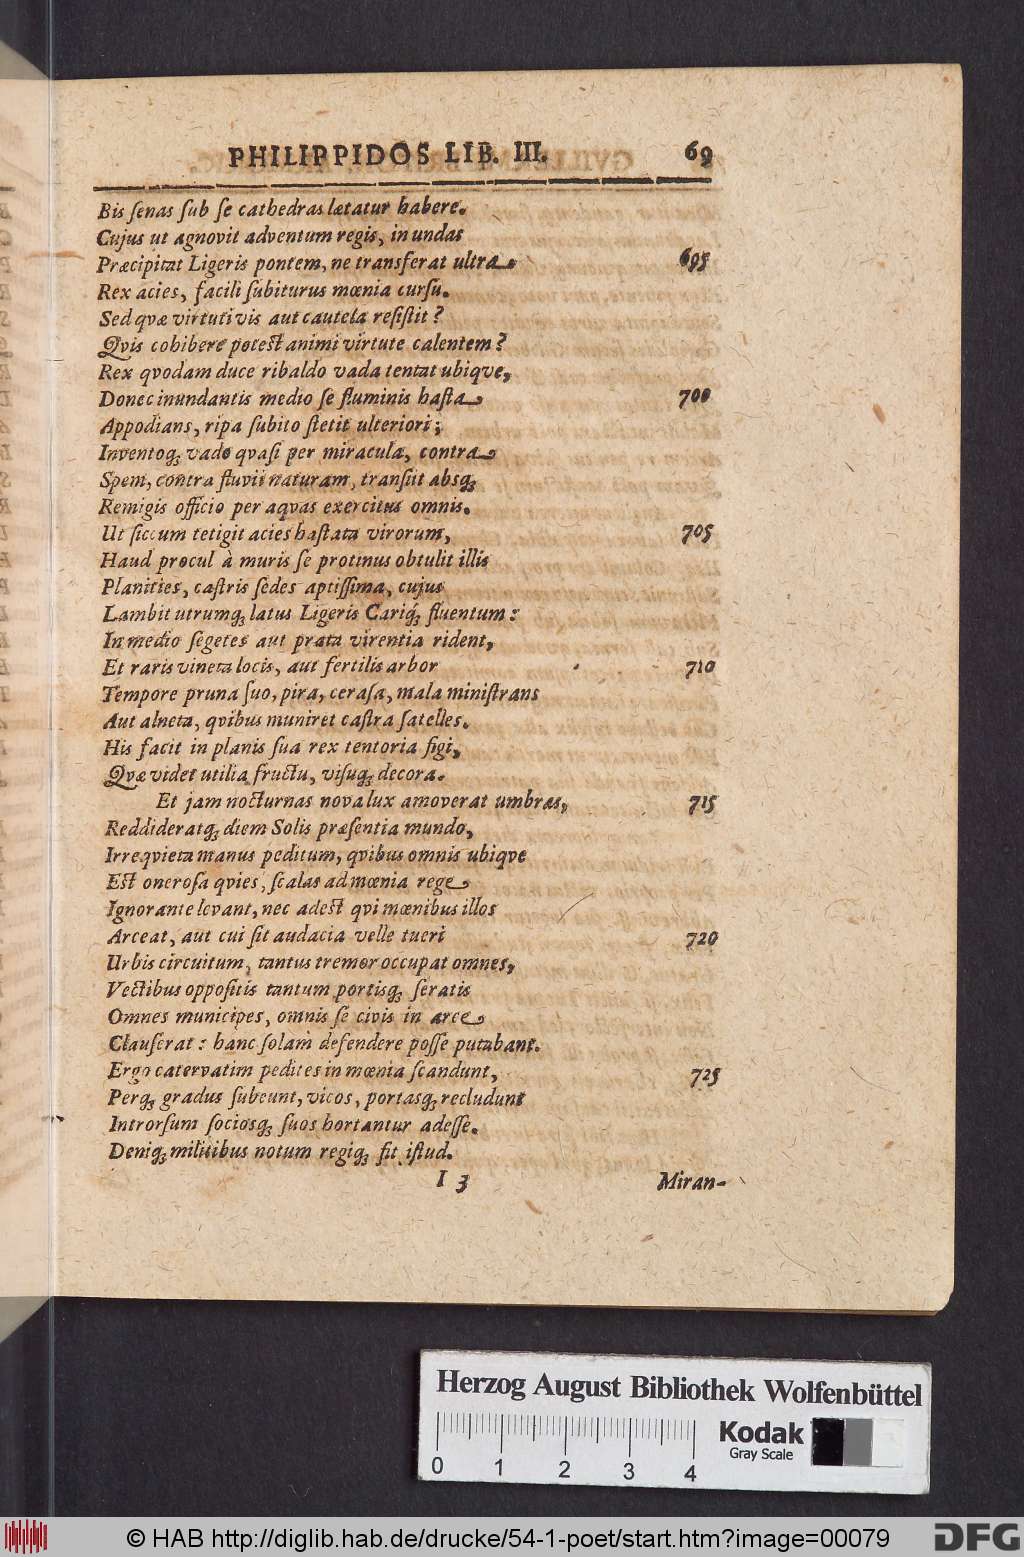 PHILIPPIDOS LIB. III. 69
Bis ſenas ſub ſe cathedras lætatur habere.
Cujus ut agnovit adventum regis, in undas
Præcipitat Ligeris pontem, ne transferat ultra 695
Rex acies, facili ſubiturus mœnia curſu.
Sed qvæ virtuti vis aut cautela reſiſtit?
Qvis cohibere potest animi virtute calentem?
Rex qvodam duce ribaldo vada tentat ubiqve,
Donec inundantis medio ſe fluminis haſta 700
Appodians, ripa ſubito ſtetit ulteriori;
Inventoq; vado qvaſi per miracula, contra
Spem, contra fluvii naturam, tranſiit absq;
Remigis officio per aqvas exercitus omnis.
Ut ſiccum tetigit acies haſtata virorum, 705
Haud procul à muris ſe protinus obtulit illis
Planities, caſtris ſedes aptiſſima, cujus
Lambit utrumq; latus Ligeris Cariq́; fluentum:
In medio ſegetes aut prata virentia rident,
Et raris vineta locis, aut fertilis arbor 710
Tempore pruna ſuo, pira, ceraſa, mala miniſtrans
Aut alneta, qvibus muniret caſtra ſatelles.
His facit in planis ſua rex tentoria figi,
Qvæ videt utilia fructu, viſuq; decora.
Et jam nocturnas nova lux amoverat umbras, 715
Reddideratq; diem Solis præſentia mundo,
Irreqvieta manus peditum, qvibus omnis ubiqve
Est oneroſa qvies, ſcalas ad mœnia rege
Ignorante levant, nec adest qvi mœnibus illos
Arceat, aut cui ſit audacia velle tueri 720
Urbis circuitum, tantus tremor occupat omnes,
Vectibus oppoſitis tantum portisq; ſeratis
Omnes municipes, omnis ſe civis in arce
Clauſerat: hanc ſolam defendere poſſe putabant.
Ergo catervatim pedites in mœnia ſcandunt, 725
Perq; gradus ſubeunt, vicos, portasq; recludunt
Introrſum ſociosq; ſuos hortantur adeſſe.
Deniq; militibus notum regiq; fit iſtud.
I 3 Miran-
Herzog August Bibliothek Wolfenbüttel
Kodak
Gray Scale
0 1 2 3 4
© HAB http://diglib.hab.de/drucke/54-1-poet/start.htm?image=00079
DFG